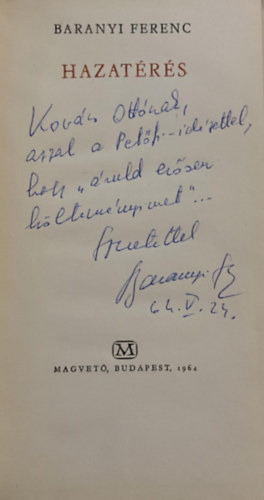 BARANYI FERENC
HAZATÉRÉS
Kovács Ottónak,
azzal a Petőfi-idézettel,
hogy „áruld erősen
költeményimet"...
Szeretettel
Baranyi F
64. V. 24.
M
MAGVETŐ, BUDAPEST, 1964